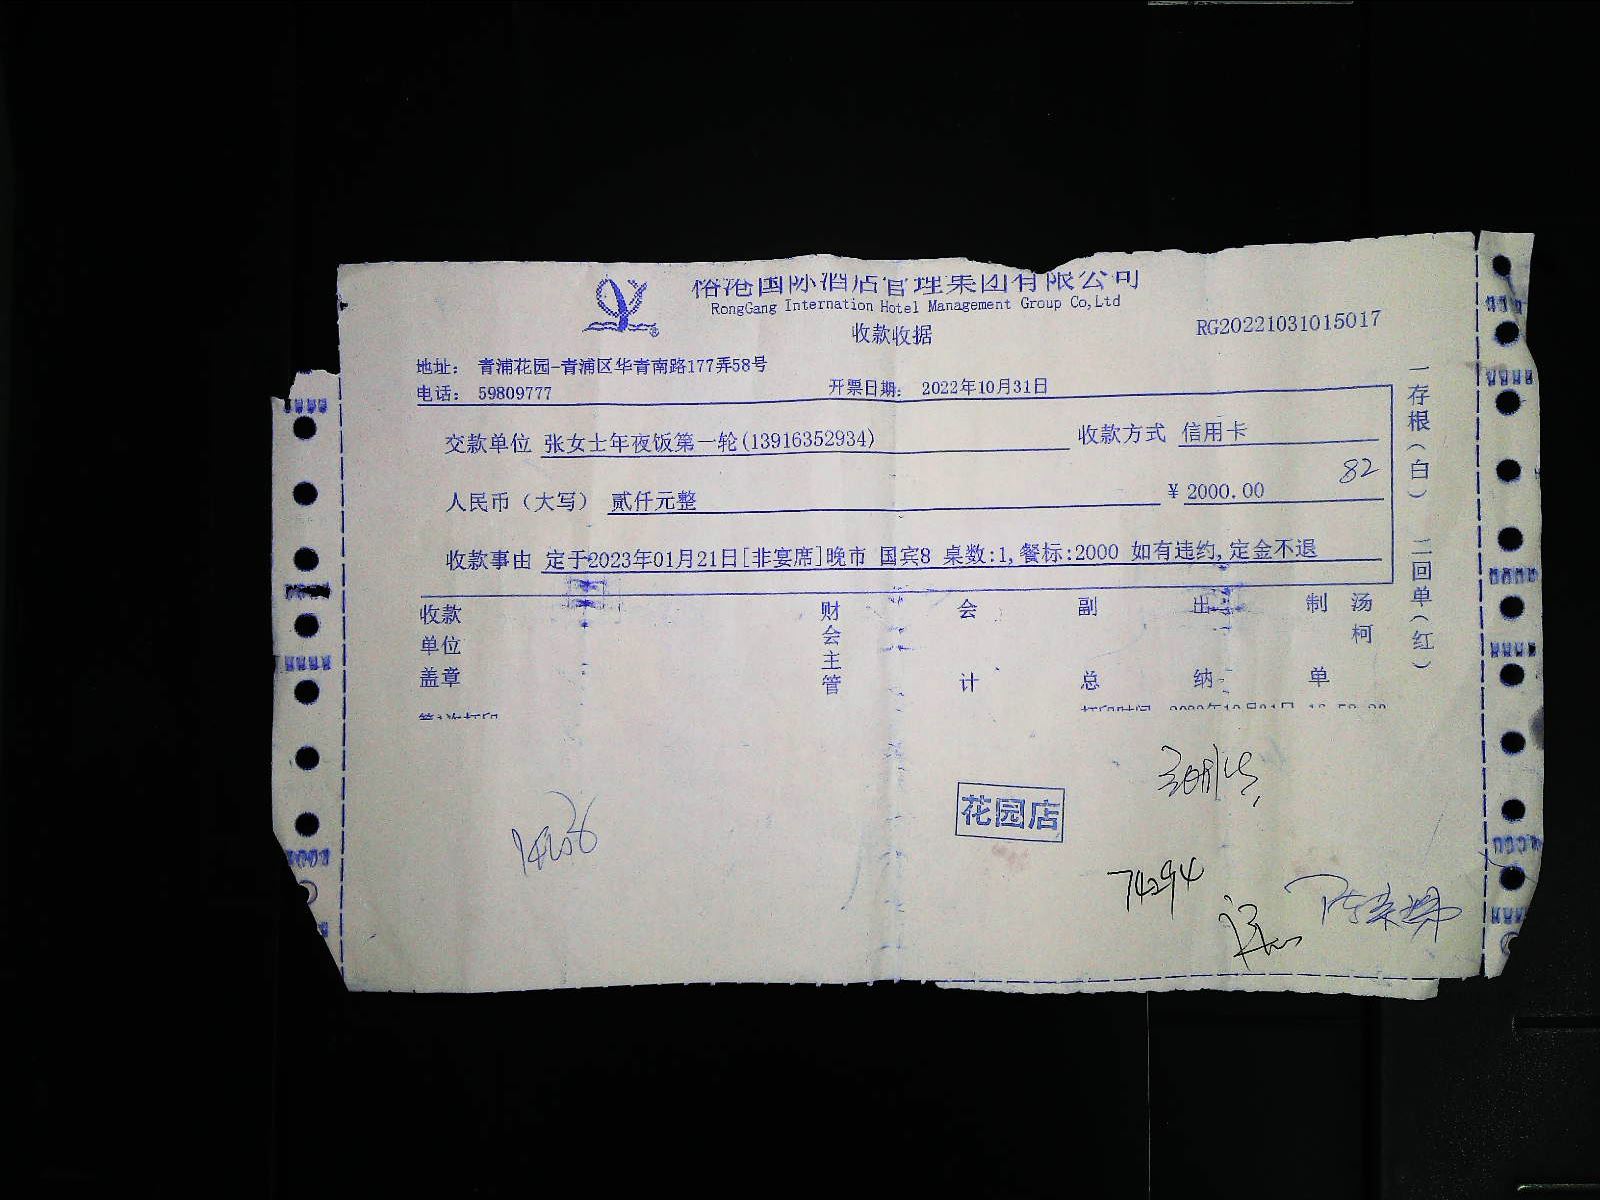 国际酒店管理集团有限公司
RongGang Internation Hotel Management Group Co,Ltd
收款收据
RG20221031015017
地址： 青浦花园-青浦区华青南路177弄58号
电话： 59809777 开票日期： 2022年10月31日
交款单位 张女士年夜饭第一轮(13916352934) 收款方式 信用卡
82
人民币（大写） 贰仟元整 ￥ 2000.00
收款事由 定于2023年01月21日[非宴席]晚市 国宾8 桌数:1,餐标:2000 如有违约,定金不退
收款单位盖章 财会主管 会计 副总 出纳 制单 汤柯
一存根（白） 二回单（红）
花园店
74294